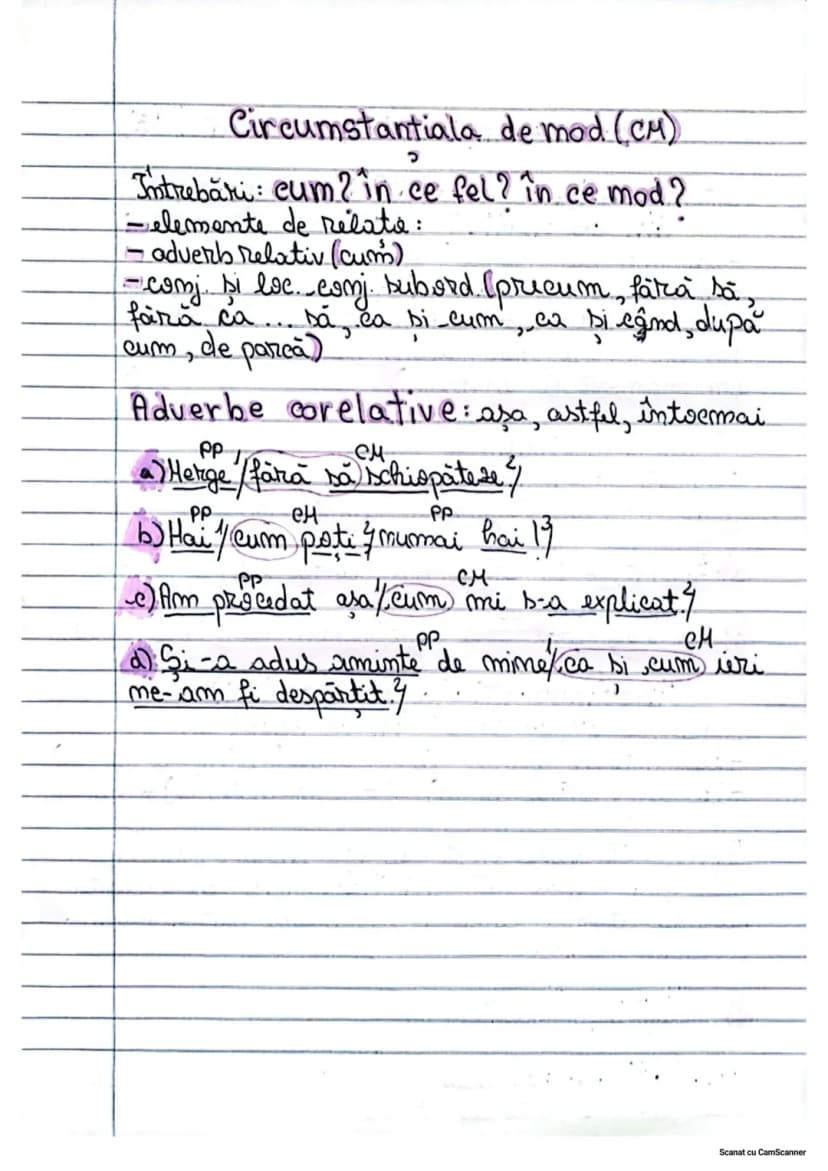 Circumstanțiala de mod (CM)
Întrebări: cum? în ce fel? în ce mod?
- elemente de relație:
- adverb relativ (cum)
- conj. și loc. conj. subord. (precum, fără să,
fără ca ... să, ca și cum, ca și când, după
cum, de parcă)
Adverbe corelative: așa, astfel, întocmai
PP CM
a) Merge /1 fără să șchiopăteze /2
PP CM PP
b) Hai /1 cum poți /2 numai hai! /3
PP CM
c) Am procedat așa /1 cum mi s-a explicat. /2
PP CM
d) Și-a adus aminte de mine /1 ca și cum ieri
ne-am fi despărțit. /2
Scanat cu CamScanner